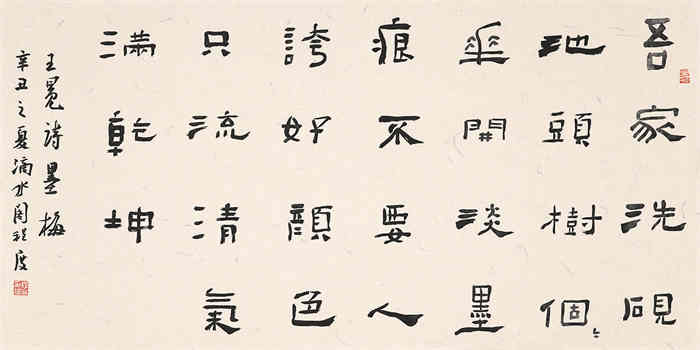 吾家洗硯
池頭樹個〻
華開淡墨
痕不要人
誇好顏色
只流清氣
滿乾坤
王冕詩墨梅
辛丑之夏滴水閣程度